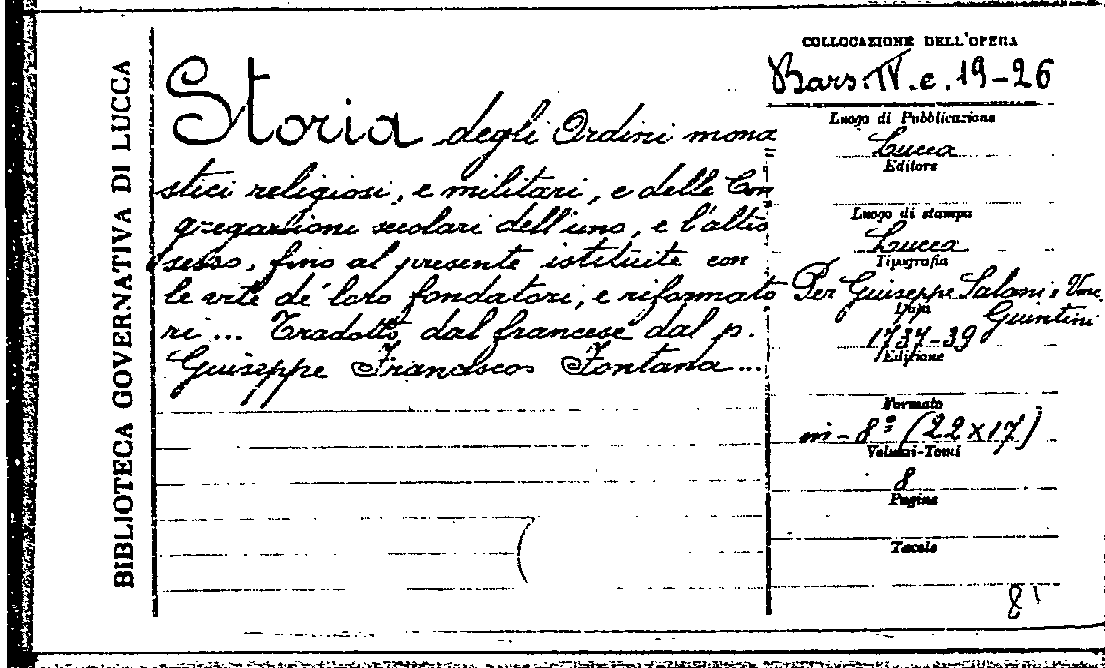 BIBLIOTECA GOVERNATIVA DI LUCCA
Storia degli Ordini mona
stici religiosi, e militari, e delle Con
gregazioni secolari dell'uno, e l'altro
sesso, fino al presente istituite con
le vite de' loro fondatori, e riformato
ri... Tradotto dal francese dal p.
Giuseppe Francesco Fontana...
COLLOCAZIONE DELL'OPERA
Bars. IV. c. 19-26
Luogo di Pubblicazione
Lucca
Editore
Luogo di stampa
Lucca
Tipografia
Per Giuseppe Salani e
Giuntini
Data
1737-39
Edizione
Formato
in-8° (22x17)
Volumi-Tomi
8
Pagine
Tavole